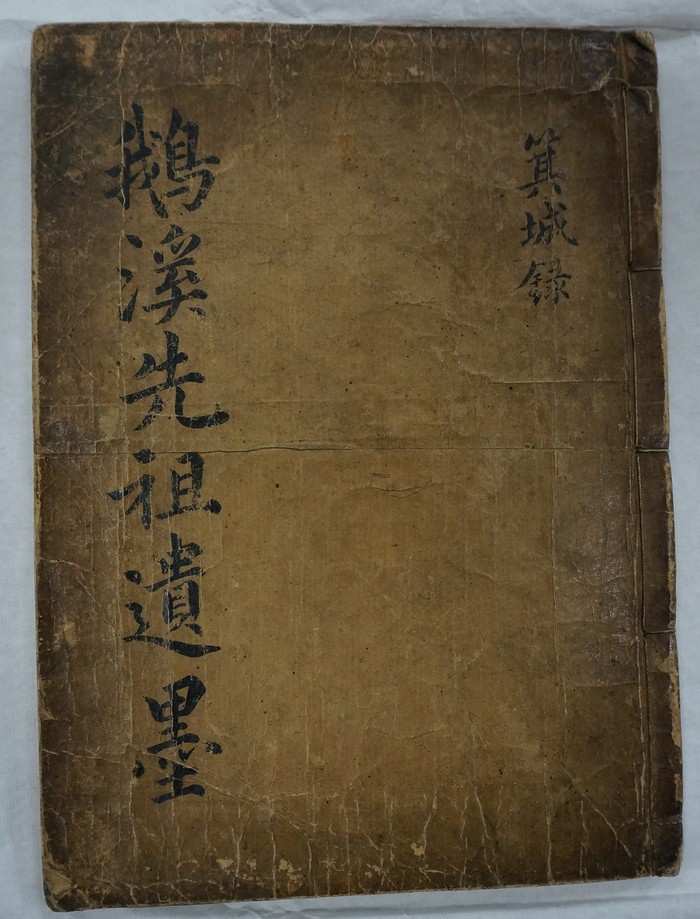 箕城録
鵝溪先祖遺墨